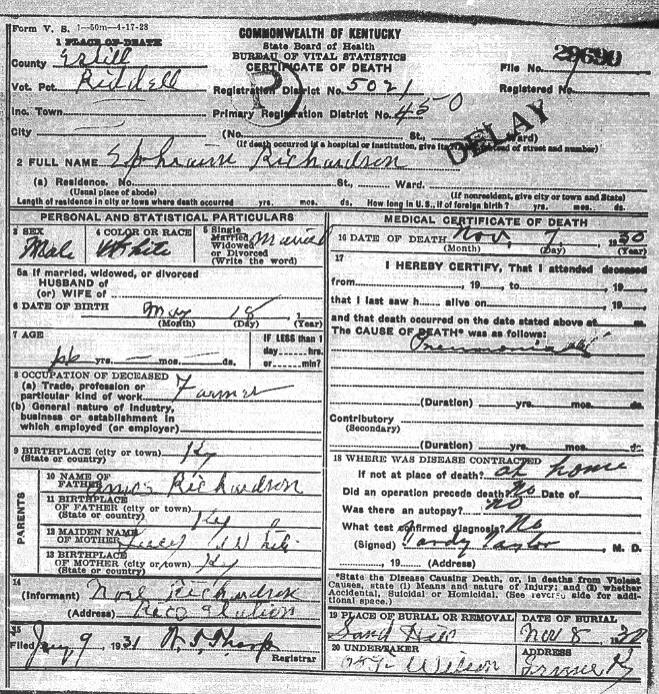 Form V. S. 1—50m—4-17-28
COMMONWEALTH OF KENTUCKY
State Board of Health
BUREAU OF VITAL STATISTICS
CERTIFICATE OF DEATH
1 PLACE OF DEATH
County Estill
Vot. Pct. Riddell
Inc. Town
City
File No. 29690
Registration District No. 5021
Registered No.
Primary Registration District No. 450
DELAY
(No. St., Ward)
(If death occurred in a hospital or institution, give its instead of street and number)
2 FULL NAME Ephraim Richardson
(a) Residence. No. St., Ward.
(Usual place of abode) (If nonresident, give city or town and State)
Length of residence in city or town where death occurred yrs. mos. ds. How long in U. S., if of foreign birth? yrs. mos. ds.
PERSONAL AND STATISTICAL PARTICULARS
3 SEX Male
4 COLOR OR RACE White
5 Single Married Widowed or Divorced (Write the word) Married
5a If married, widowed, or divorced
HUSBAND of
(or) WIFE of
6 DATE OF BIRTH May 18, 1
(Month) (Day) (Year)
7 AGE yrs. mos. ds.
IF LESS than 1 day hrs. or min?
8 OCCUPATION OF DECEASED
(a) Trade, profession or particular kind of work Farmer
(b) General nature of industry, business or establishment in which employed (or employer)
9 BIRTHPLACE (city or town) Ky
(State or country)
PARENTS
10 NAME OF FATHER Richardson
11 BIRTHPLACE OF FATHER (city or town) Ky
(State or country)
12 MAIDEN NAME OF MOTHER
13 BIRTHPLACE OF MOTHER (city or town) Ky
(State or country)
14
(Informant) Richardson
(Address) Station
15
Filed Jany 9 1931
Registrar
MEDICAL CERTIFICATE OF DEATH
16 DATE OF DEATH Nov, 7, 1930
(Month) (Day) (Year)
17
I HEREBY CERTIFY, That I attended deceased
from , 19 , to , 19
that I last saw h alive on , 19
and that death occurred on the date stated above at m.
The CAUSE OF DEATH* was as follows:
Pneumonia
(Duration) yrs. mos. ds.
Contributory
(Secondary)
(Duration) yrs. mos. ds.
18 WHERE WAS DISEASE CONTRACTED
If not at place of death? at home
Did an operation precede death? No Date of
Was there an autopsy? No
What test confirmed diagnosis? No
(Signed) , M. D.
, 19 (Address)
*State the Disease Causing Death, or, in deaths from Violent Causes, state (1) Means and nature of Injury; and (2) whether Accidental, Suicidal or Homicidal. (See reverse side for additional space.)
19 PLACE OF BURIAL OR REMOVAL Sand Hill
DATE OF BURIAL Nov 8 1930
20 UNDERTAKER Wilson
ADDRESS Irvine Ky